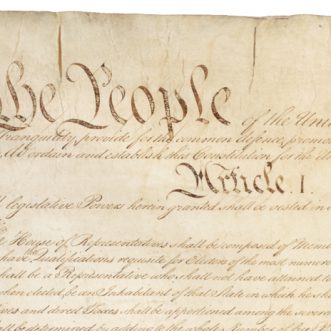 the People of the Unit
Tranquility, provide for the common defence, promo
do ordain and establish this Constitution for the
Article. I.
legislative Powers herein granted shall be vested in a
House of Representatives shall be composed of Mem
have Qualifications requisite for Electors of the most numero
shall be a Representative who shall not have attained
when elected, be an Inhabitant of that State in which he sh
and direct Taxes shall be apportioned among the seve
shall be determined by adding to the whole Number